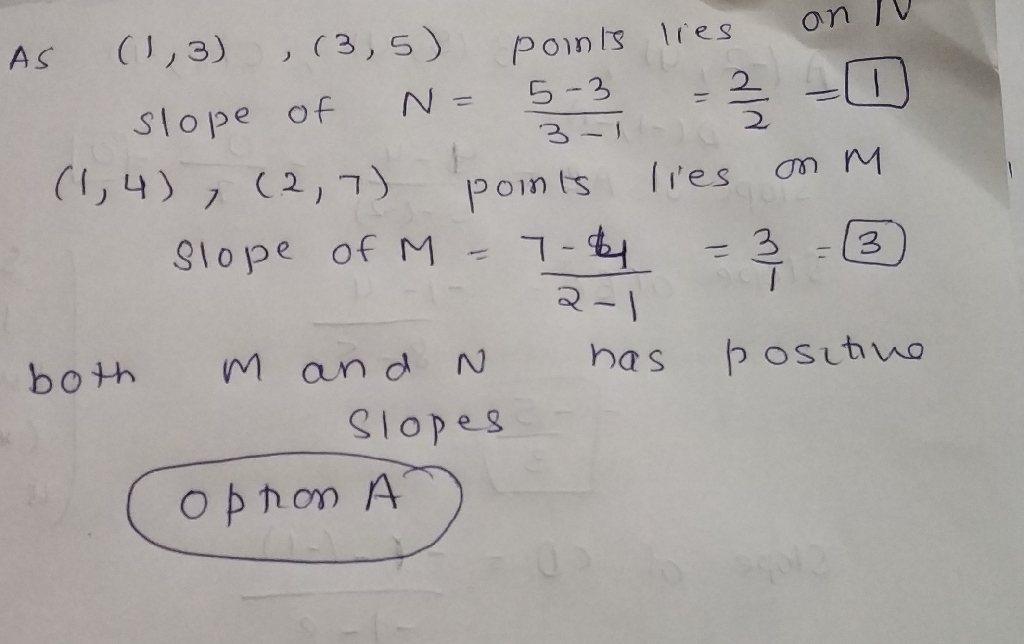 As (1,3) , (3,5) points lies on N
slope of N = 5-3 / 3-1 = 2/2 = 1
(1,4) , (2,7) points lies on M
slope of M = 7-4 / 2-1 = 3/1 = 3
both M and N has positive
slopes
option A